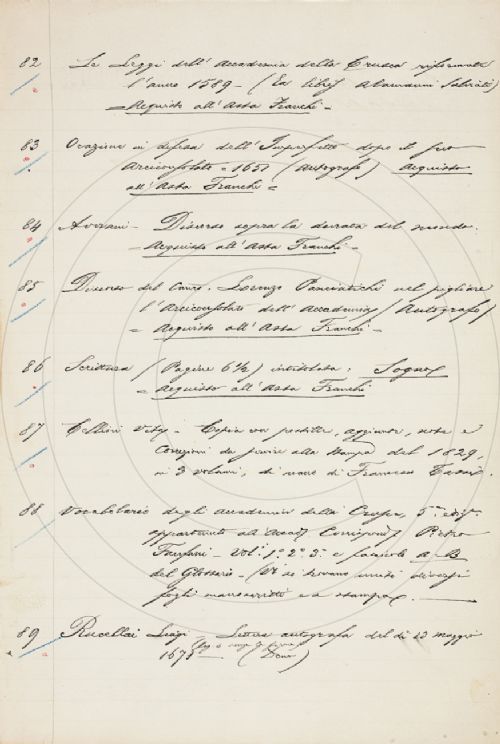 82 Le Leggi dell' Accademia della Crusca riformate
l'anno 1589 - (Ex libris Alamanni Salviati)
Acquisto all'Asta Franchi -
83 Orazione in difesa dell'Imperfetto dopo il suo
Arciconsolato - 1651 (Autografo) Acquisto
all'Asta Franchi =
84 Averani - Discorso sopra la durata del mondo.
- Acquisto all'Asta Franchi -
85 Discorso del Cons. Lorenzo Panciatichi nel pigliare
l'Arciconsolato dell'Accademia (Autografo)
- Acquisto all'Asta Franchi -
86 Scrittura (Pagine 6½) intitolata: Sogno
= Acquisto all'Asta Franchi
87 Cellini Vita - Copia con postille, aggiunte, note e
Correzioni da servire alla stampa del 1829,
in 3 volumi, di mano di Francesco Tassi.
88 Vocabolario degli Accademici della Crusca, 5ª ediz.
appartenuto all'Accad. Corrispond. Pietro
Fanfani - Vol. 1º 2º 3º e fascicolo
del Glossario - (Vi si trovano uniti diversi
fogli manoscritti e a stampa).
89 Rucellai Luigi - Lettera autografa del dì 23 maggio
1673 - (Dono)